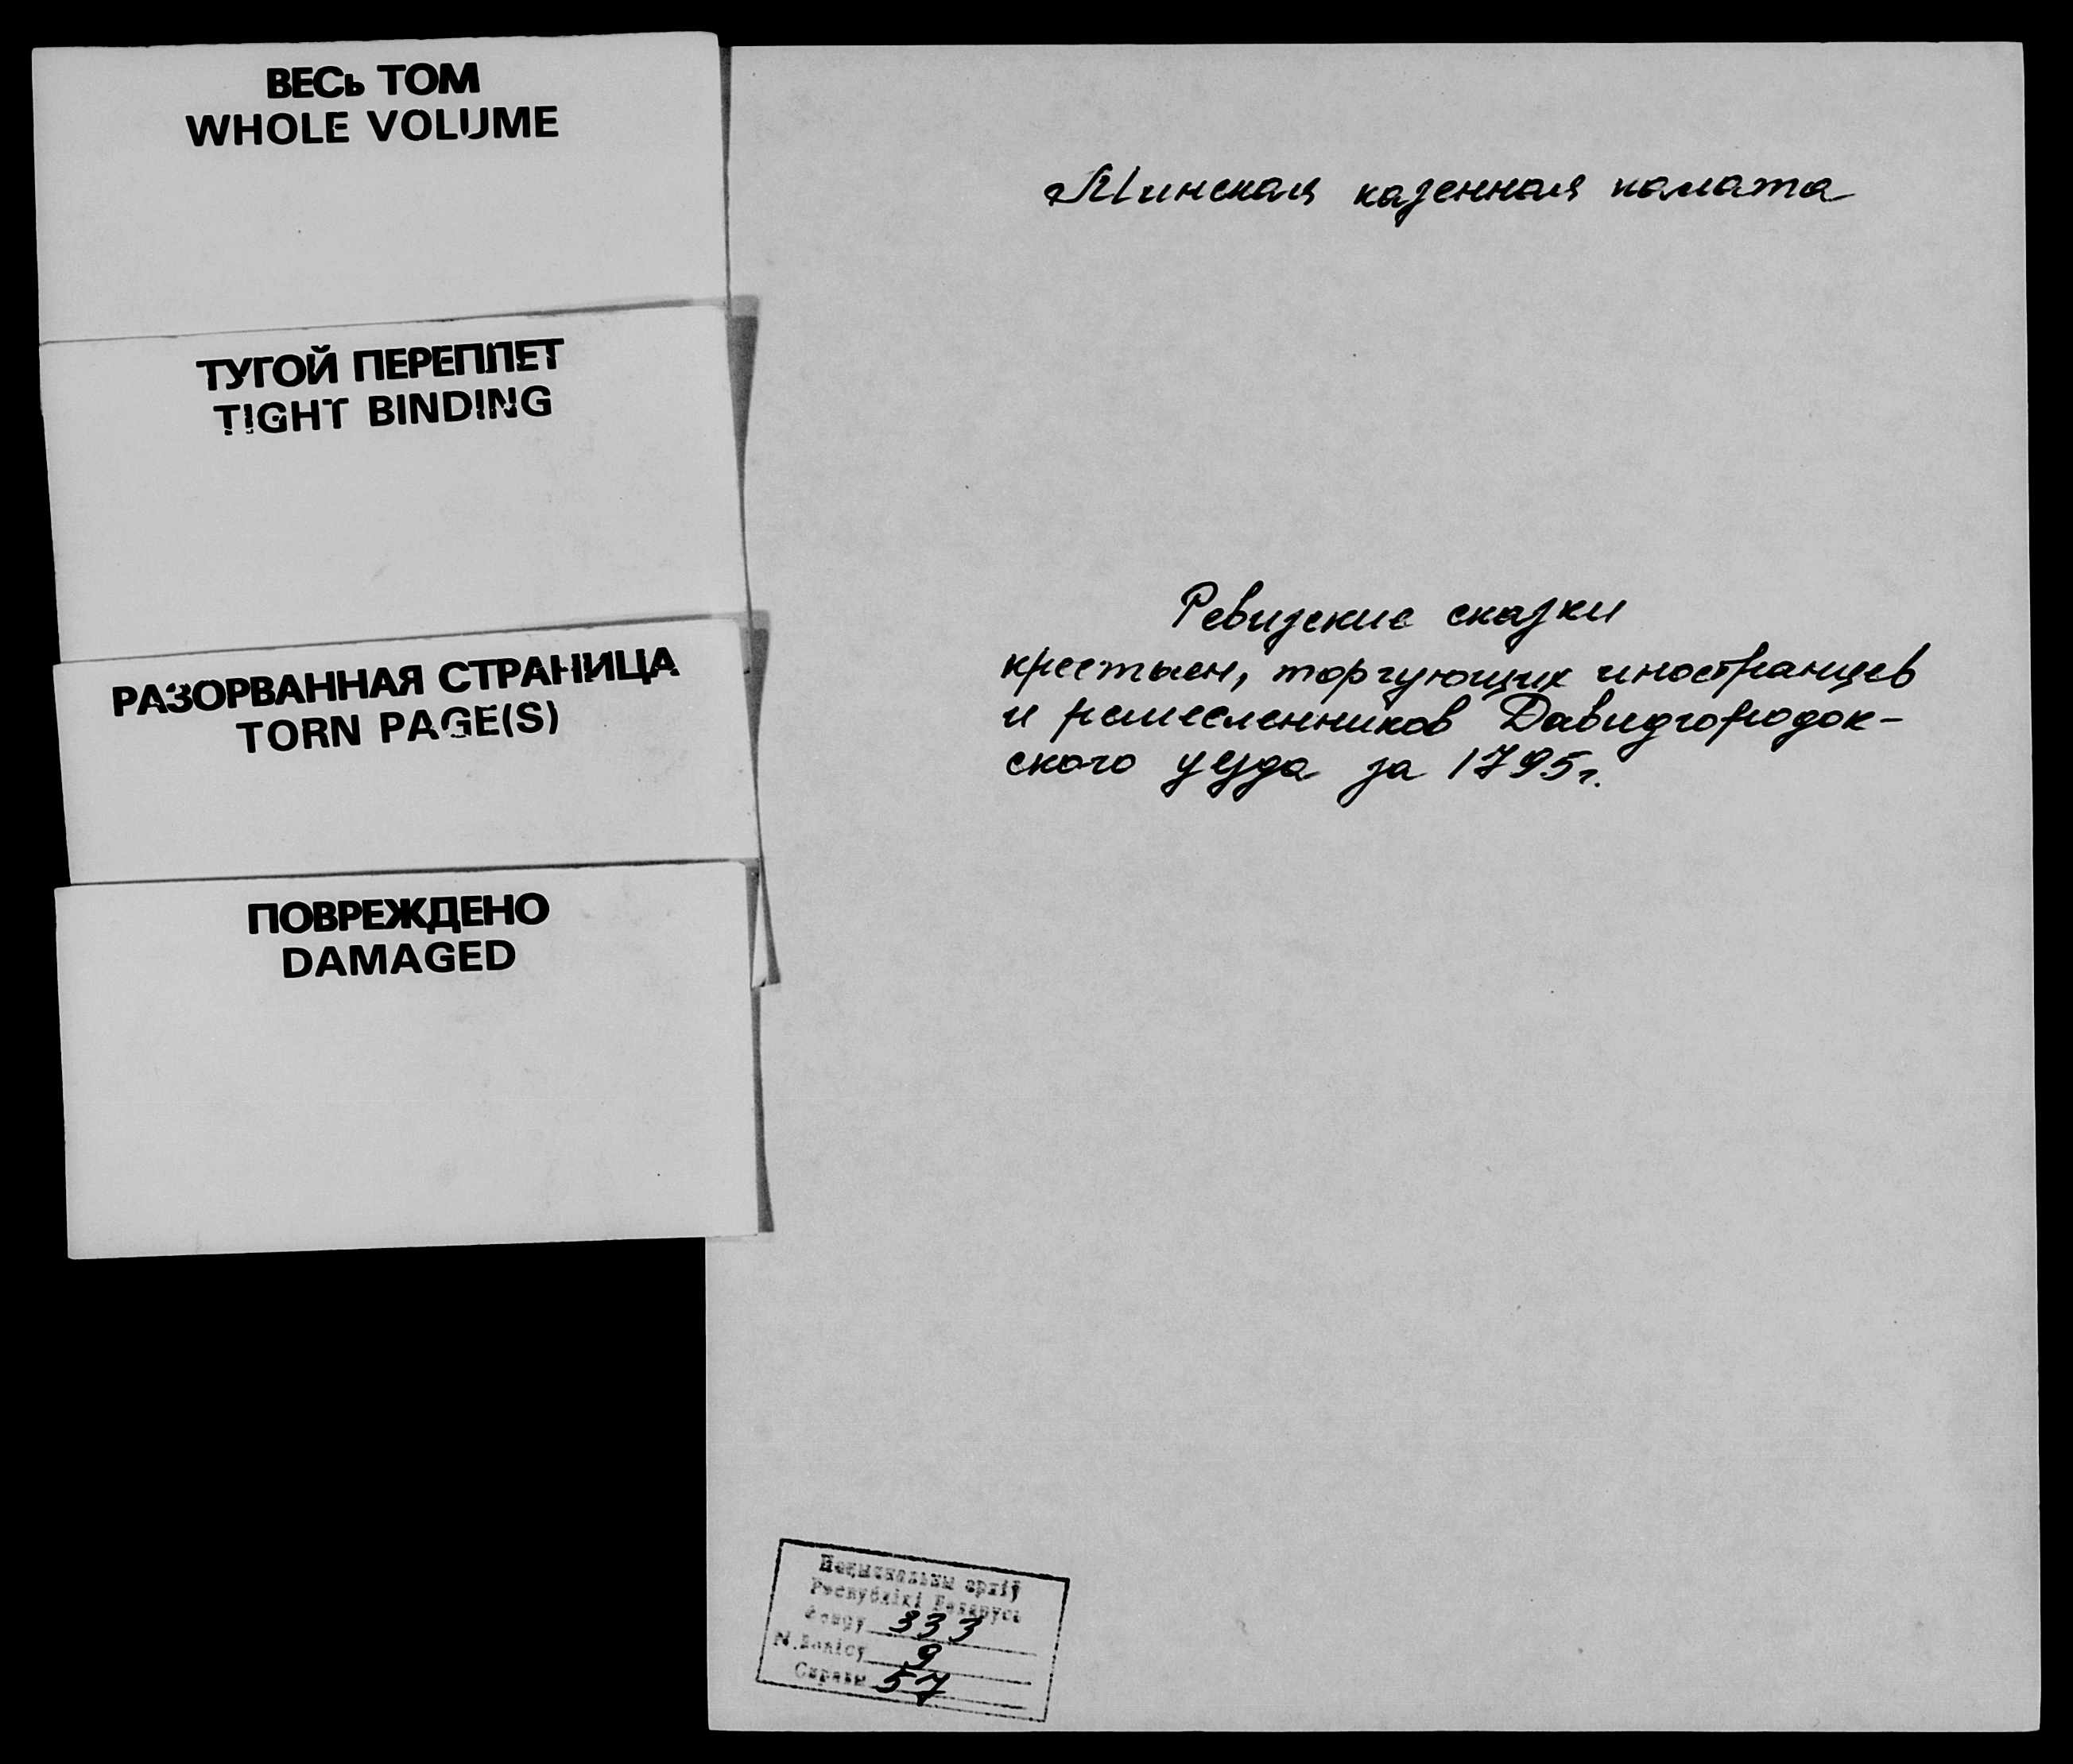 ВЕСЬ ТОМ
WHOLE VOLUME
ТУГОЙ ПЕРЕПЛЕТ
TIGHT BINDING
РАЗОРВАННАЯ СТРАНИЦА
TORN PAGE(S)
ПОВРЕЖДЕНО
DAMAGED
Минская казенная палата
Ревизские сказки
крестьян, торгующих иностранцев
и ремесленников Давидгородок-
ского уезда за 1795г.
архіў
Рэспублікі Беларусь
Фонду 333
N. Вопісу 9
Справы 57